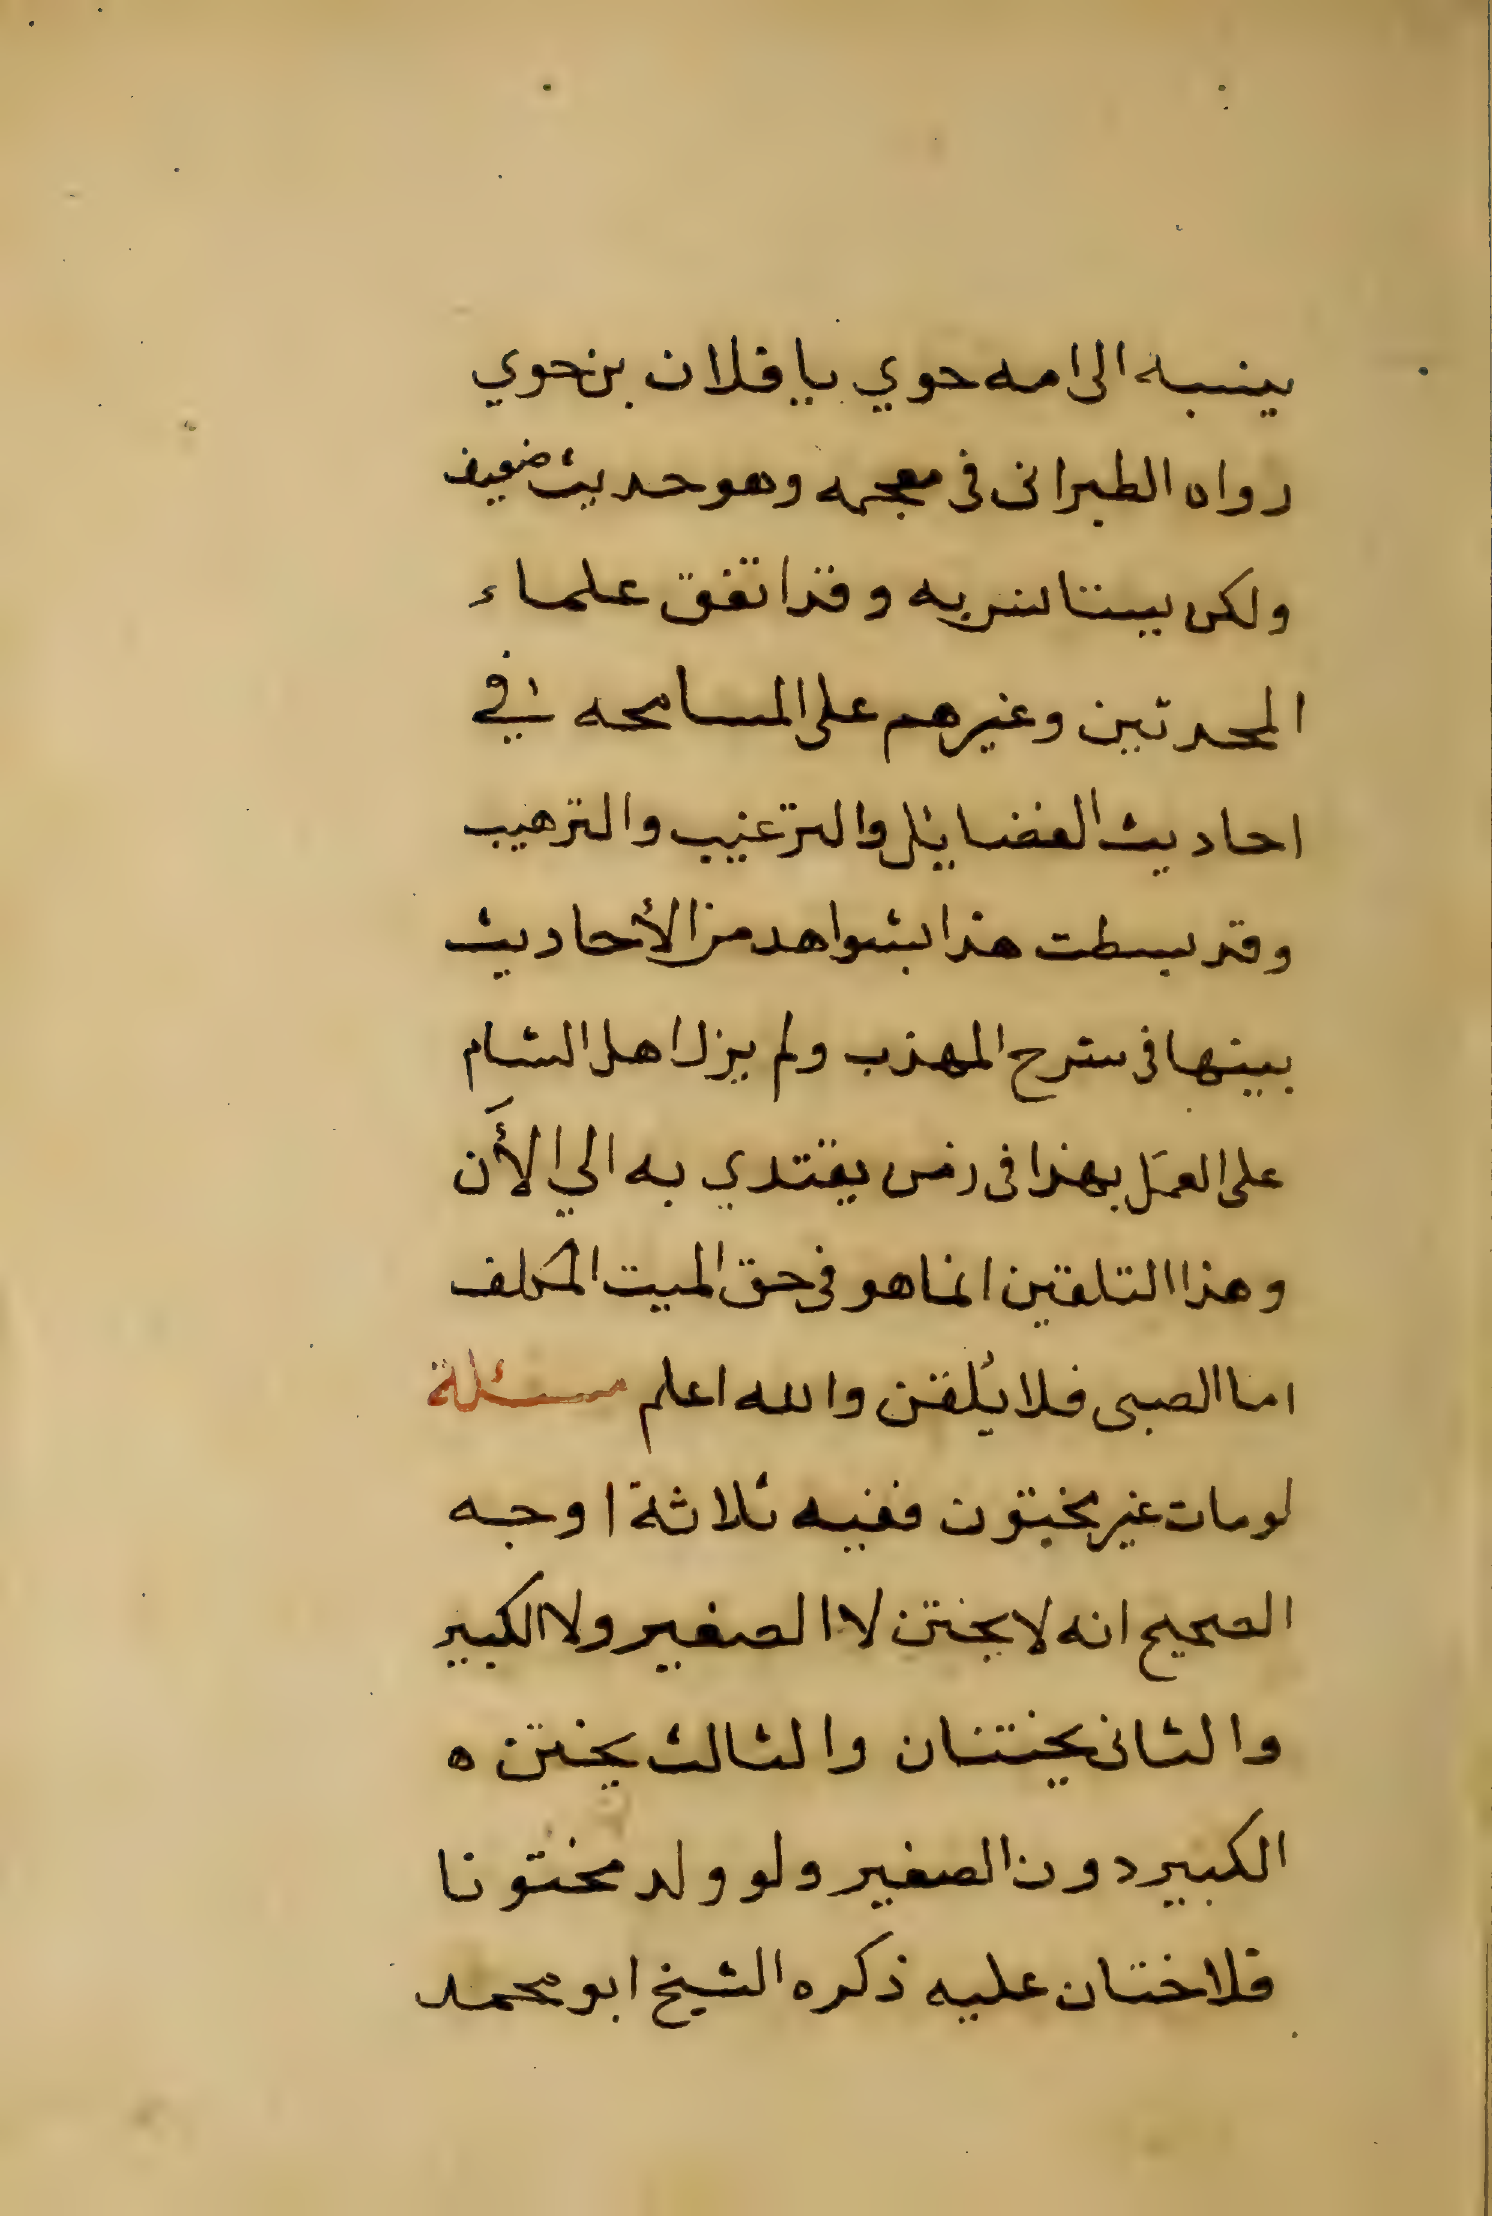 ينسبه الى امه حوي يا فلان بن حوي
رواه الطبرانى فى معجمه وهو حديث ضعيف
ولكن يستانس به وقد اتفق علماء
المحدثين وغيرهم على المسامحه في
احاديث الفضايل والترغيب والترهيب
وقد بسطت هذا بشواهد من الأحاديث
بينها فى شرح المهذب ولم يزل اهل الشام
على العمل بهذا فى زمن يقتدي به الي الأَن
وهذا التلقين انما هو فى حق الميت المكلف
اما الصبى فلا يُلقن والله اعلم مسئلة
لو مات غير مختون ففيه ثلاثة اوجه
الصحيح انه لا يختن لا الصغير ولا الكبير
والثانى يختنان والثالث يختن ه
الكبير دون الصغير ولو ولد مختونا
فلا ختان عليه ذكره الشيخ ابو محمد